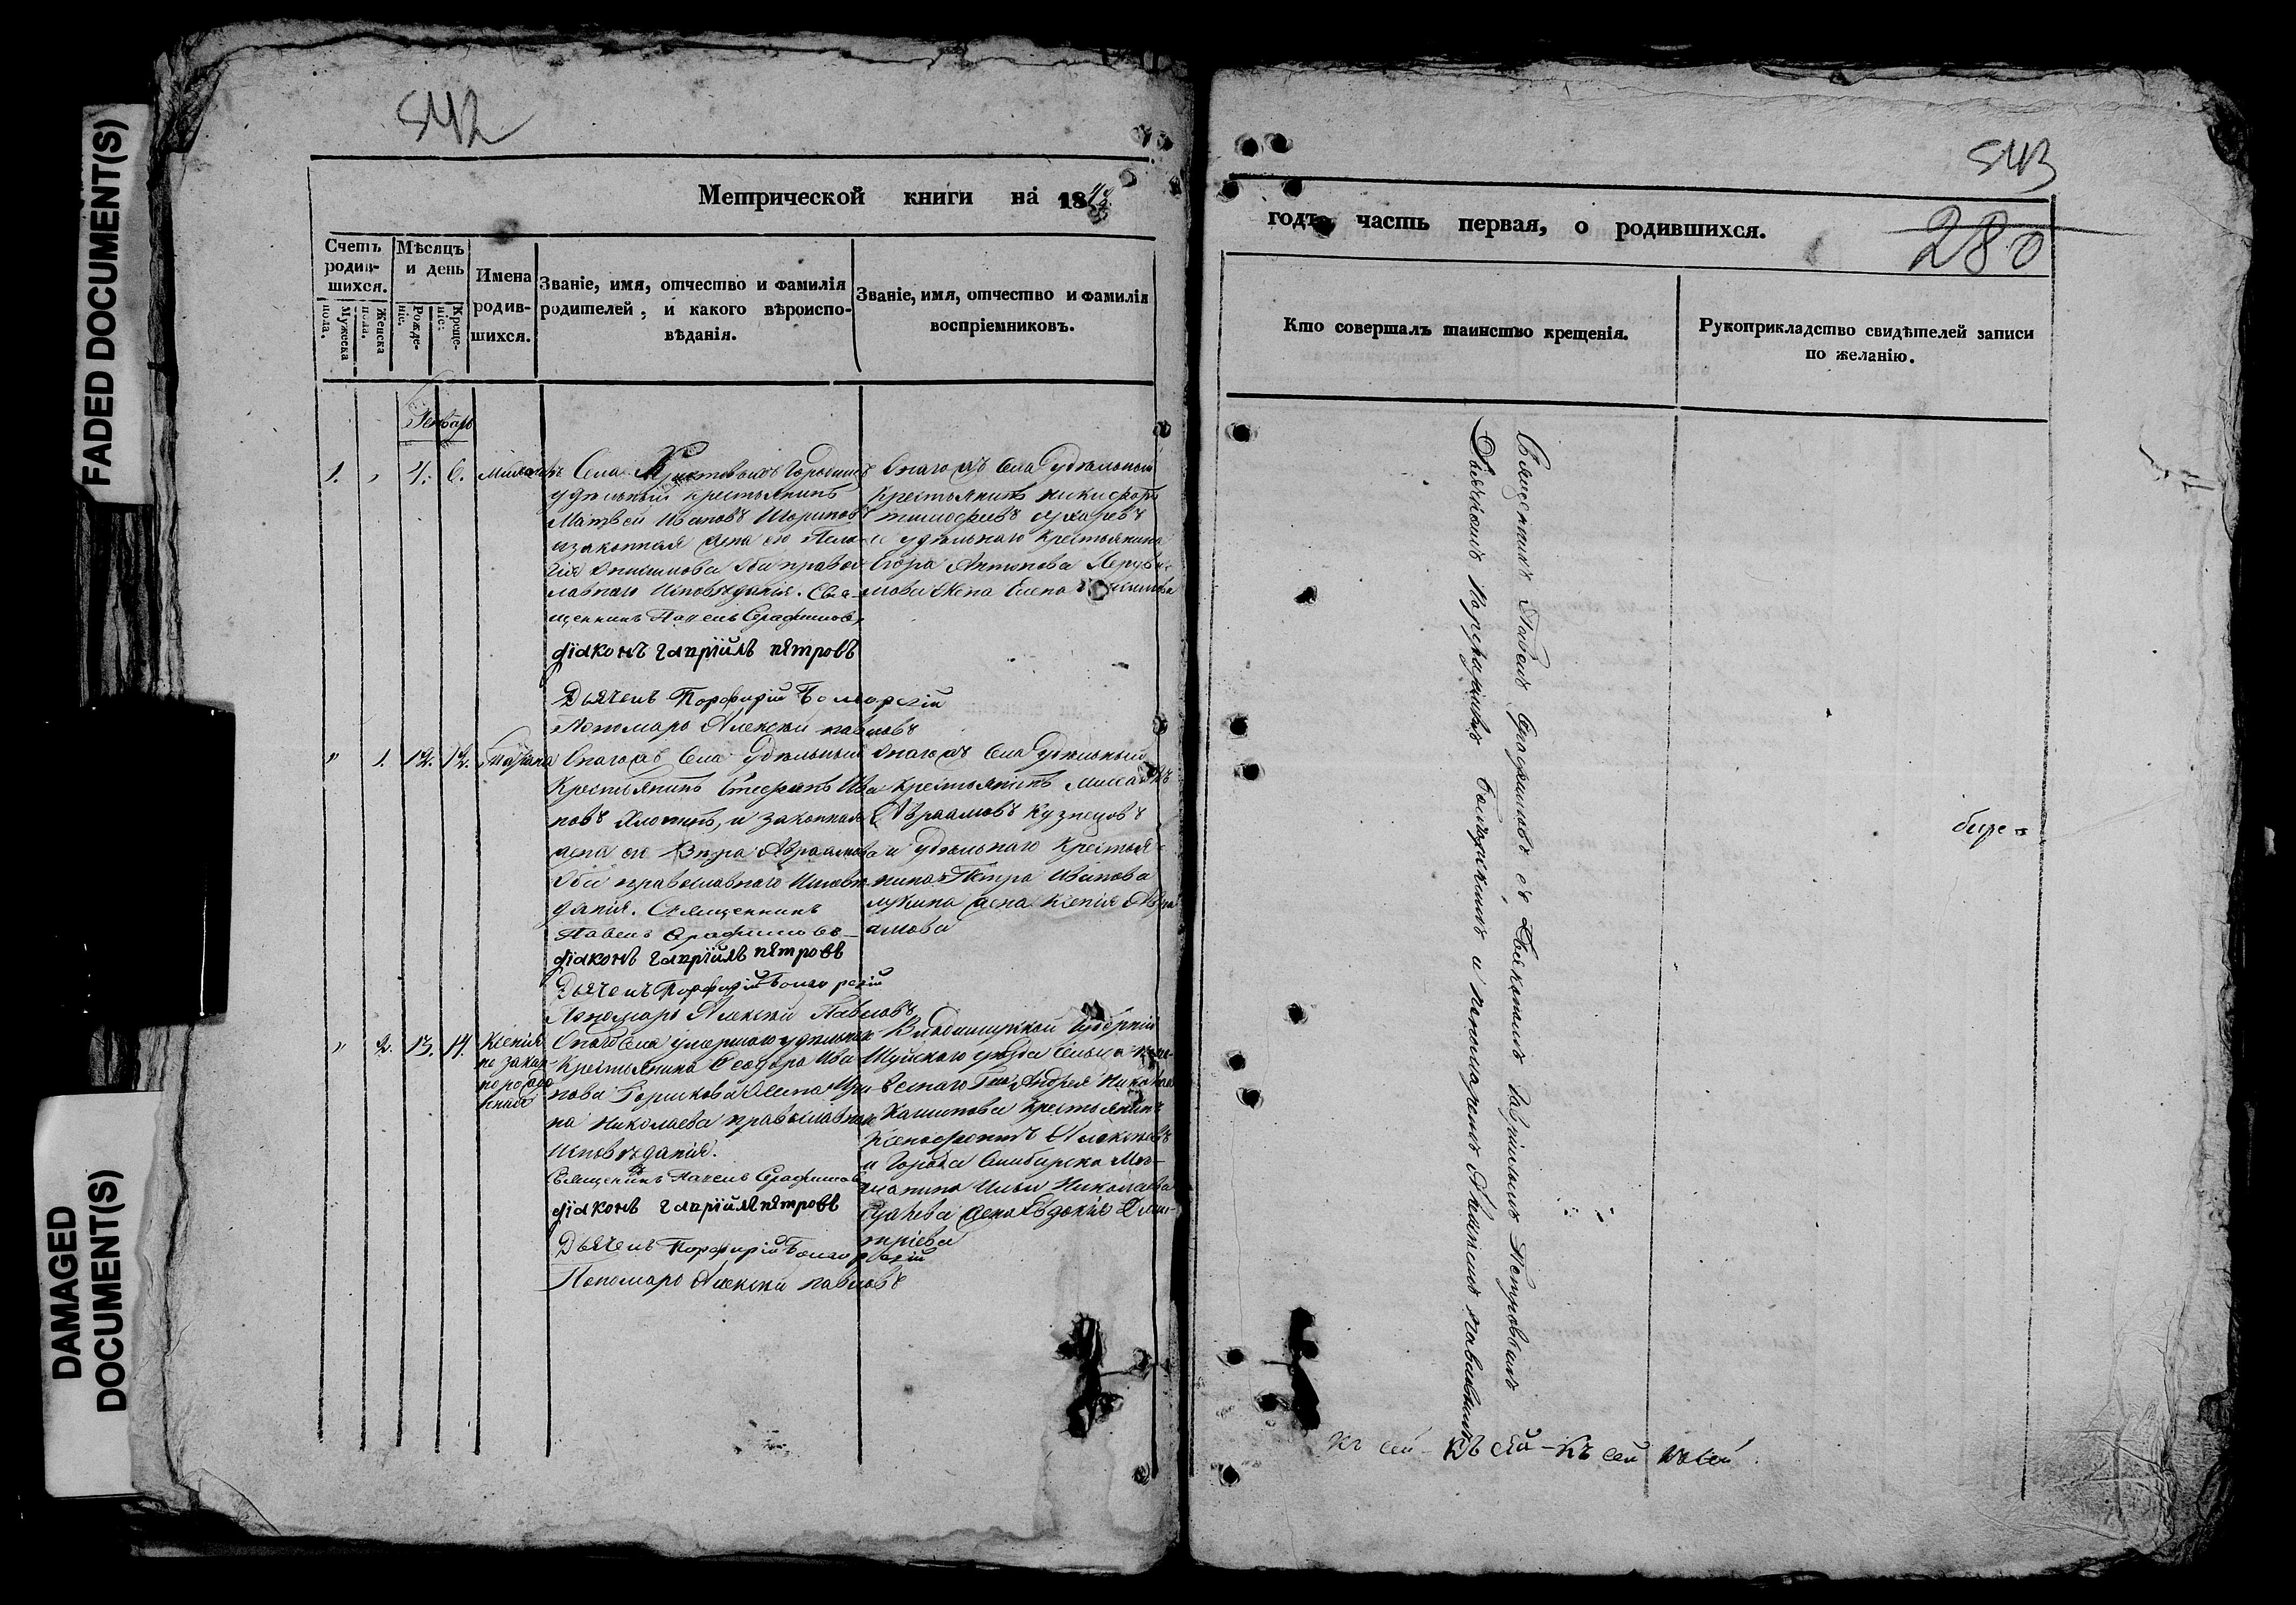 FADED DOCUMENT(S)
DAMAGED
DOCUMENT(S)
542
Метрической книги на 1843
Счетъ родив-шихся.
Мужеска пола.
Женска пола.
Мѣсяцъ и день
Рожде-ніе.
Креще-ніе.
Имена родив-шихся.
Званіе, имя, отчество и фамилія
родителей, и какого вѣроиспо-
вѣданія.
Званіе, имя, отчество и фамилія
воспріемниковъ.
Генварь
1. „ 4. 6.
Села Городищъ
удѣльный крестьянинъ
Матвей Ивановъ
изаконная жена его Пела-
гія Онисимова оба право-
славнаго Исповѣданія. Свя-
щенникъ Павелъ Серафимовъ
діаконъ гавріилъ пѣтровъ
Дьячекъ Порфирій
Пономарь Алексѣй павловъ
Онагожъ Села Удѣльный
Крестьянинъ никифоръ
тимофѣевъ
и удѣльнаго крестьянина
Егора Антонова
жена Елена
„ 1. 12. 12. Татіана
Онагожъ Села Удѣльный
Крестьянинъ Стефанъ Ива-
новъ и законная
жена его Вѣра Авраамова
оба православнаго Исповѣ-
данія. Священникъ
Павелъ Серафимовъ
діаконъ гавріилъ пѣтровъ
Дьячекъ Порфирій
Пономарь Алексѣй Павловъ
Онагожъ Села Удѣльный
крестьянинъ
Авраамовъ Кузнецовъ
и удѣльнаго Крестья-
нина Петра Иванова
жена Ксенія Авра-
амова
„ 2. 13. 14. Ксенія
не закон-
но рожде-
нная
Онагожъ Села умершаго удѣльнаго
Крестьянина Феодора Ива-
нова Горшкова жена Ири-
на Николаева православнаго
Исповѣданія.
Священникъ Павелъ Серафимовъ
діаконъ гавріилъ пѣтровъ
Дьячекъ Порфирій
Пономарь Алексѣй павловъ
Владимирской Губерніи
Шуйскаго уѣзда Сельца
Андрея
крестьянинъ
Ксенофонтъ Алексѣевъ
и Города Симбирска Мѣ-
щанина Ильи Николаева
жена Евдокія Дми-
тріева
543
280
года, часть первая, о родившихся.
Кто совершалъ таинство крещенія.
Рукоприкладство свидѣтелей записи
по желанію.
Священникъ Павелъ Серафимовъ съ Діакономъ Гавріиломъ Петровымъ
Дьячкомъ Порфиріемъ и пономаремъ Алексѣемъ Павловымъ
къ сей - къ сей - къ сей къ сей